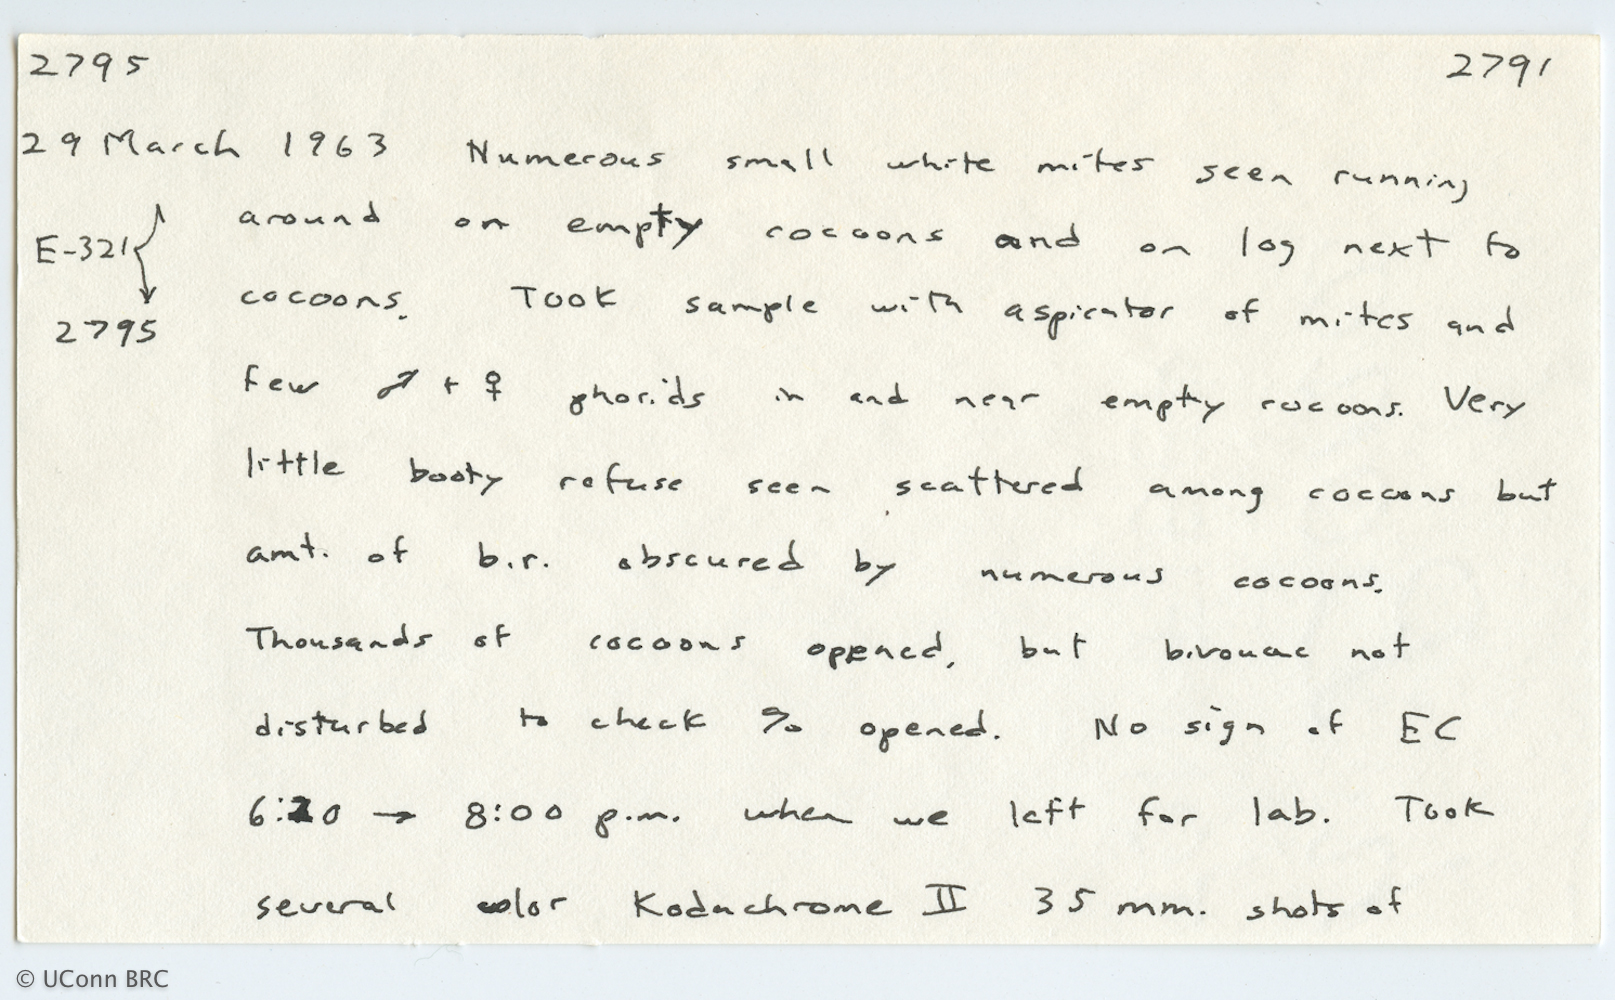 2795 2791
29 March 1963 Numerous small white mites seen running
around on empty cocoons and on log next to
E-321
cocoons. Took sample with aspirator of mites and
2795
few ♂ + ♀ phorids in and near empty cocoons. Very
little booty refuse seen scattered among cocoons but
amt. of b.r. obscured by numerous cocoons.
Thousands of cocoons opened, but bivouac not
disturbed to check % opened. No sign of EC
6:20 → 8:00 p.m. when we left for lab. Took
several color Kodachrome II 35 mm. shots of
© UConn BRC